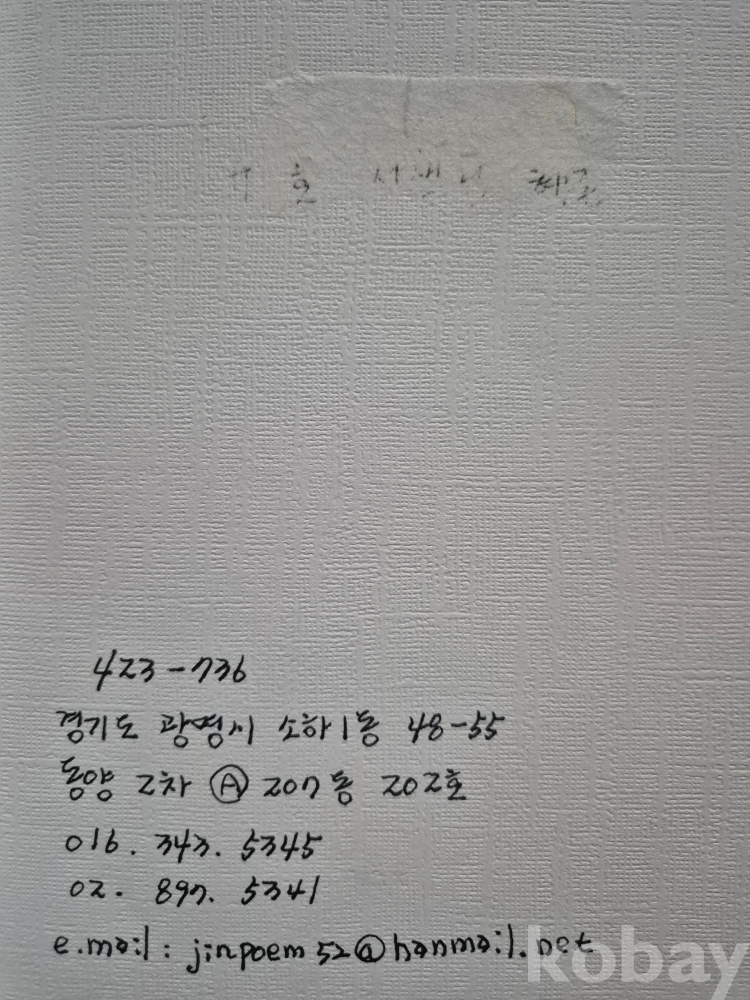 호 혜존
423-736
경기도 광명시 소하1동 48-55
동양 2차 Ⓐ 207동 202호
016. 343. 5345
02. 897. 5341
e.mail : jinpoem52@hanmail.net
kobay